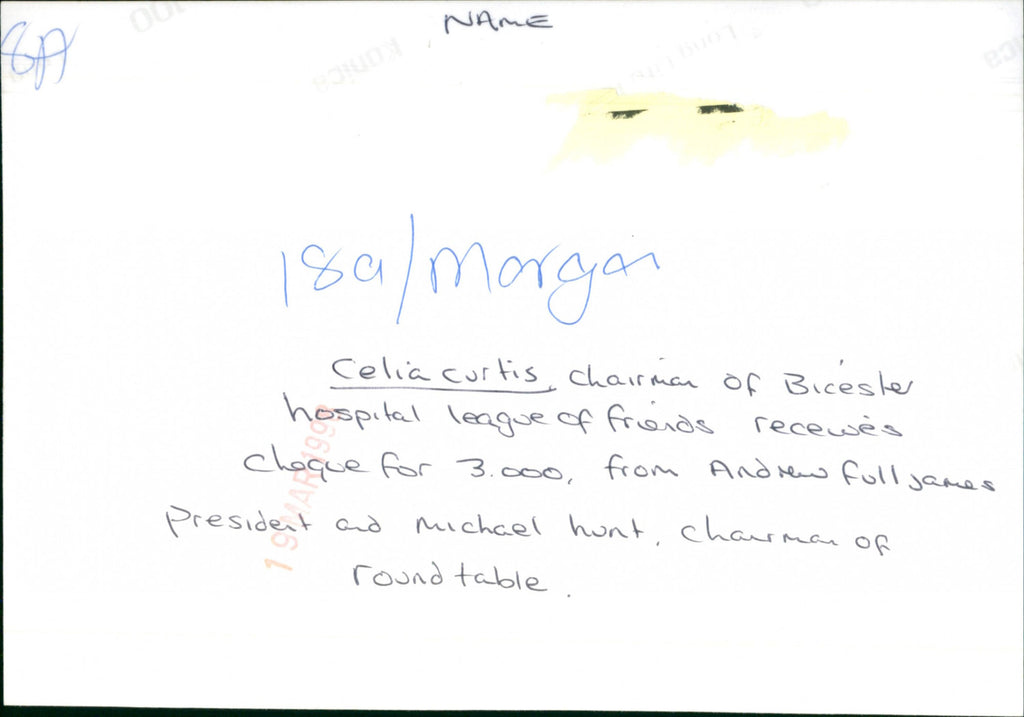 NAME
8A
Konica
18a/Morgan
Celia Curtis, Chairman of Bicester
hospital league of friends receives
cheque for 3.000, from Andrew Fulljames
President and Michael hunt, Chairman of
round table.
19 MAR 1998